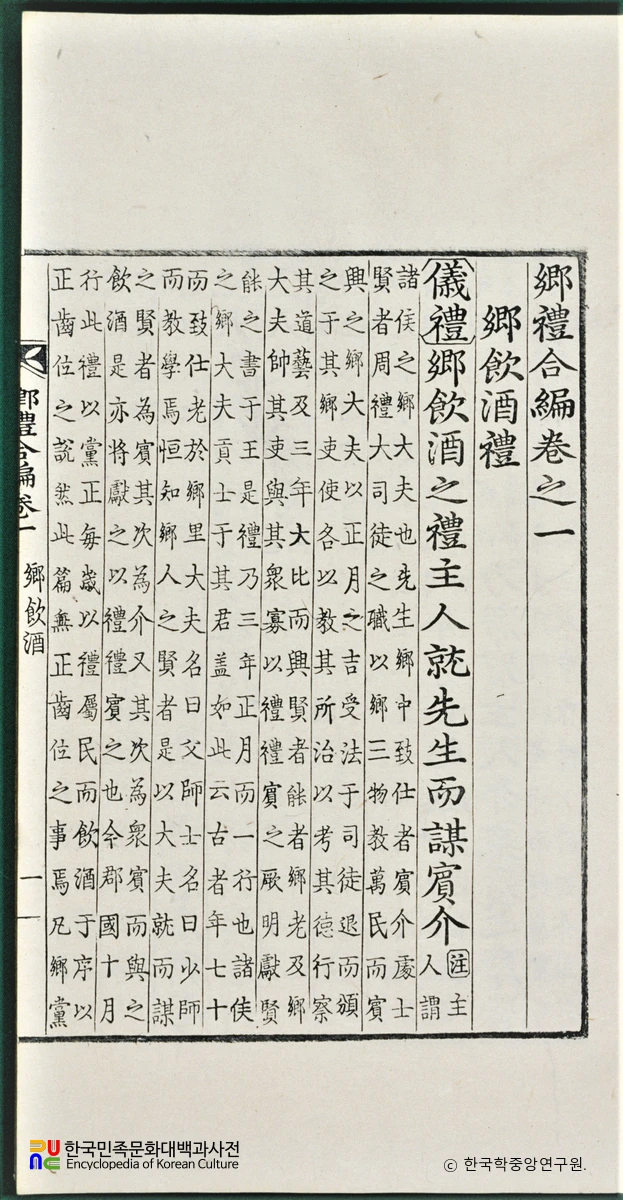 鄕禮合編卷之一
鄕飮酒禮
儀禮鄕飮酒之禮主人就先生而謀賓介注主
人謂
諸侯之鄕大夫也先生鄕中致仕者賓介處士
賢者周禮大司徒之職以鄕三物敎萬民而賓
興之鄕大夫以正月之吉受法于司徒退而頒
之于其鄕吏使各以敎其所治以考其德行察
其道藝及三年大比而興賢者能者鄕老及鄕
大夫帥其吏與其衆寡以禮禮賓之厥明獻賢
能之書于王是禮乃三年正月而一行也諸侯
之鄕大夫貢士于其君盖如此云古者年七十
而致仕老於鄕里大夫名曰父師士名曰少師
而敎學焉恒知鄕人之賢者是以大夫就而謀
之賢者為賓其次為介又其次為衆賓而與之
飮酒是亦将獻之以禮禮賓之也今郡國十月
行此禮以黨正每歲以禮屬民而飮酒于序以
正齒位之說然此篇無正齒位之事焉凡鄕黨
鄕禮合編卷一 鄕飮酒 一
한국민족문화대백과사전
Encyclopedia of Korean Culture
© 한국학중앙연구원.